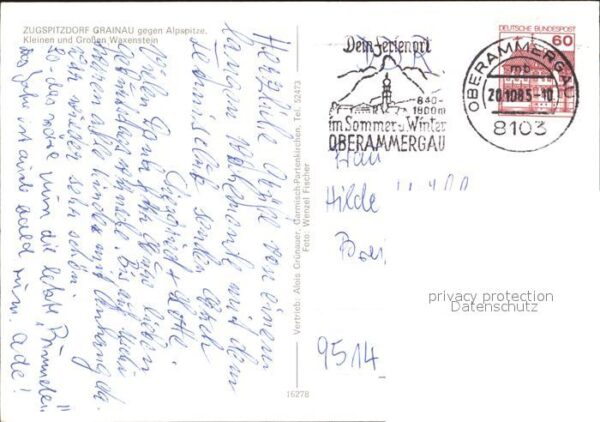 ZUGSPITZDORF GRAINAU gegen Alpspitze,
Kleinen und Großen Waxenstein
Herzliche Grüße von einem
langen Wochenende mit dem
senden Euch
Siegfried + Lotte.
Vielen Dank für Eure lieben
Geburtstags
waren alle Kinder mit Anhang da.
war wieder sehr schön.
So - das wäre nun die letzte "Bimmelei"
das Jahr ist auch bald rum. Ade!
Vertrieb: Alois Grünauer, Garmisch-Partenkirchen, Tel. 52473
Foto: Wenzel Fischer
16278
Dein Ferienort
840-
1800m
im Sommer u. Winter
OBERAMMERGAU
DEUTSCHE BUNDESPOST
60
OBERAMMERGAU
mb
20.10.85-10
8103
DDR
Frau
Hilde
9514
privacy protection
Datenschutz